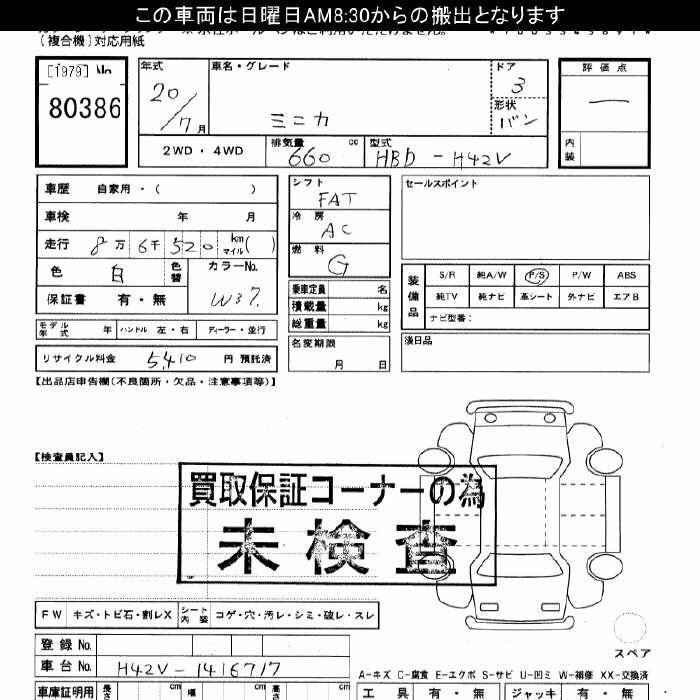 この車両は日曜日AM8:30からの搬出となります
(複合機)対応用紙
[1979] No
80386
年式 20/7月
車名・グレード
ミニカ
ドア 3
形状 バン
評価点
—
内装
2WD・4WD
排気量 660 cc
型式 HBD-H42V
車歴 自家用・( )
車検 年 月
走行 8万6千520 km マイル( )
色 白 色替
カラーNo. W37.
保証書 有・無
シフト FAT
冷房 AC
燃料 G
乗車定員 名
積載量 kg
総重量 kg
名変期限 月 日
セールスポイント
装備品
S/R 純A/W P/S P/W ABS
純TV 純ナビ 革シート 外ナビ エアB
ナビ型番:
モデル年式 年 ハンドル 左・右 ディーラー・並行
リサイクル料金 5,410 円 預託済
欠品
【出品店申告欄(不良箇所・欠品・注意事項等)】
【検査員記入】
買取保証コーナーの為
未検査
FW キズ・トビ石・割レX シート内装 コゲ・穴・汚レ・シミ・破レ・スレ
スペア
登録No.
車台No. H42V-1416717
A-キズ C-腐食 E-エクボ S-サビ U-凹ミ W-補修 XX-交換済
車庫証明用 長さ cm 幅 cm 高さ cm
工具 有・無 ジャッキ 有・無